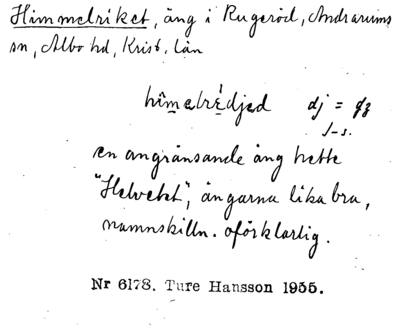 Himmelriket, äng i Rugeröd, Andrarums
sn, Albo hd, Krist. län
hîm̲elrédjed dj = dz
J-s.
en angränsande äng hette
"Helvetet", ängarna lika bra,
namnskilln. oförklarlig.
Nr 6178. Ture Hansson 1955.